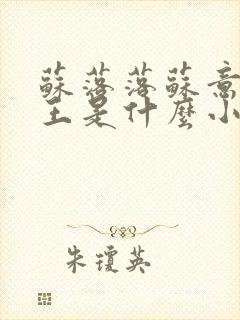 蘇落落蘇意
王是什麼小
朱瓊英